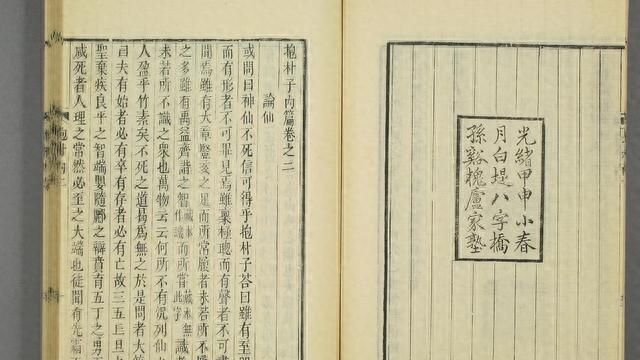 光緒甲申小春
月白堤八字橋
孫谿槐廬家塾
抱朴子內篇卷之二
論仙
或問曰神仙不死信可得乎抱朴子荅曰雖有至
而有形者不可畢見焉雖稟極聰而有聲者不可
聞焉雖有大章豎亥之足而所常履者未若所不
之多雖有禹益齊諧之智而所嘗識
未若所不識之衆也萬物云云何所不有況列仙
人盈乎竹素矣不死之道曷爲無之於是問者大笑
曰夫有始者必有卒有存者必有亡故三五丘旦
聖棄疾良平之智端嬰隨酈之辯賁育五丁之勇
咸死者人理之常然必至之大端也徒聞有先霜